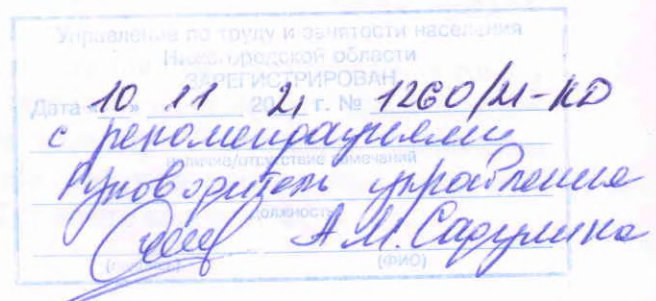 Управление по труду и занятости населения
Нижегородской области
ЗАРЕГИСТРИРОВАН
Дата «10» 11 2021 г. № 1260/21-КД
с рекомендациями
наличие/отсутствие замечаний
Руководитель управления
должность
А.М. Садулина
(ФИО)